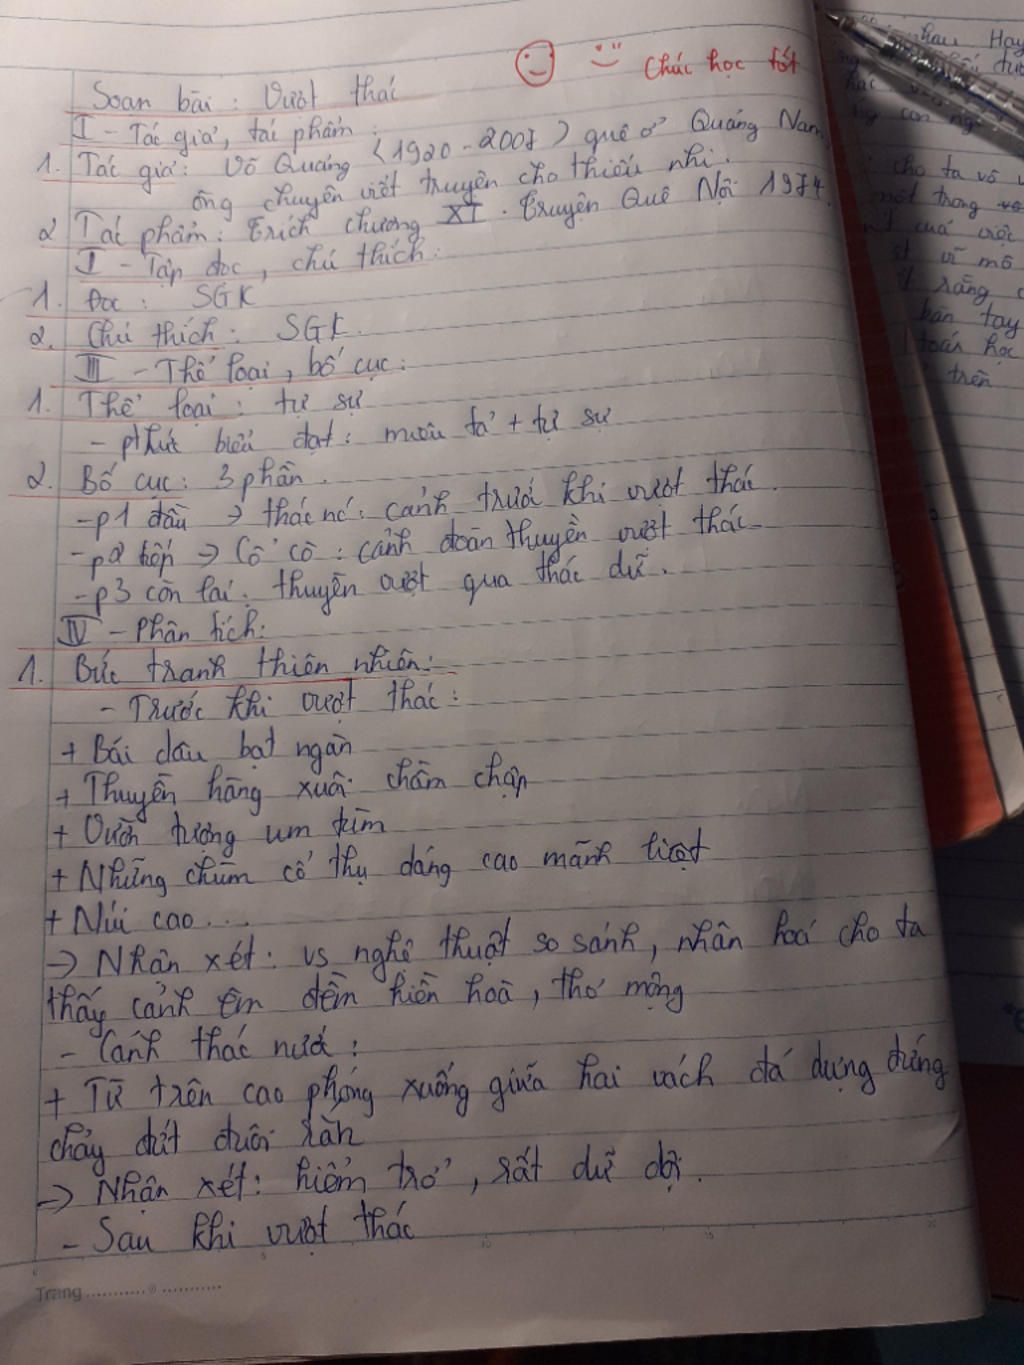 Chúc học tốt
Soạn bài : Vượt thác
I - Tác giả, tác phẩm :
1. Tác giả : Võ Quảng (1920 - 2007) quê ở Quảng Nam
ông chuyên viết truyện cho thiếu nhi.
2 Tác phẩm : trích chương XI . truyện Quê Nội 1974.
I - Tập đọc, chú thích :
1. Đọc : SGK
2. Chú thích : SGK.
III - Thể loại, bố cục :
1. Thể loại : tự sự
- pthức biểu đạt : miêu tả + tự sự
2. Bố cục : 3 phần.
- p1 đầu → thác nc : cảnh trước khi vượt thác.
- p2 tiếp → Cổ cò : cảnh đoàn thuyền vượt thác
- p3 còn lại : thuyền vượt qua thác dữ.
IV - Phân tích :
1. Bức tranh thiên nhiên :
- Trước khi vượt thác :
+ Bãi dâu bạt ngàn
+ Thuyền hàng xuôi chầm chậm
+ Vườn tược um tùm
+ Những chùm cổ thụ dáng cao mãnh liệt
+ Núi cao ...
→ Nhận xét : vs nghệ thuật so sánh, nhân hoá cho ta
thấy cảnh êm đềm hiền hoà, thơ mộng
- Cảnh thác nước :
+ Từ trên cao phóng xuống giữa hai vách đá dựng đứng
chảy đứt đuôi rắn
→ Nhận xét : hiểm trở, rất dữ dội.
- Sau khi vượt thác
Trang
nhau Hay
cho ta
một trong
quá việc
vì mô
rằng
bàn tay
toán học
trên